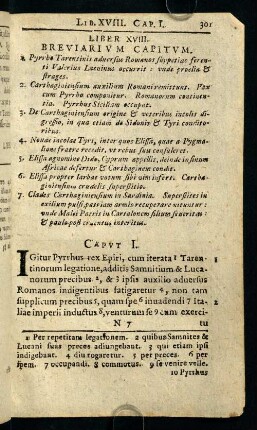 LIB. XVIII. CAP. I. 301
LIBER XVIII.
BREVIARIVM CAPITVM.
1. Pyrrho Tarentinis adversus Romanos suppetias feren-
ti Valerius Lævinus occurrit: unde prælia &
strages.
2. Carthaginiensium auxilium Romani remittunt. Pax
cum Pyrrho componitur. Romanorum continen-
tia. Pyrrhus Siciliam occupat.
3. De Carthaginiensium origine & veteribus incolis di-
gressio, in qua etiam de Sidonis & Tyri condito-
ribus.
4. Novæ incolæ Tyri, inter quos Elissa, quæ a Pygma-
lione fratre recedit, ut rebus suis consuleret.
5. Elissa cognomine Dido, Cyprum appellit, deinde in sinum
Africæ defertur & Carthaginem condit.
6. Elissa propter Iarbæ votum sibi vim infert. Cartha-
giniensium crudelis superstitio.
7. Clades Carthaginiensium in Sardinia. Superstites in
exilium pulsi patriam armis recuperare nituntur:
unde Malei Patris in Cartalonem filium severitas:
& paulo post cruentus interitus.
CAPVT I.
IGitur Pyrrhus rex Epiri, cum iterata 1 Taren- 1
tinorum legatione, additis Samnitium & Luca-
norum precibus 2, & 3 ipsis auxilio adversus 2
Romanos indigentibus fatigaretur 4, non tam
supplicum precibus 5, quam spe 6 invadendi 7 Ita-
liæ imperii inductus 8, venturum se 9 cum exerci-
N 7 tu
1 Per repetitam legationem. 2 quibus Samnites &
Lucani suas preces adiungebant. 3 qui etiam ipsi
indigebant. 4 diu rogaretur. 5 per preces. 6 per
spem. 7 occupandi. 8 commotus. 9 se venire velle.
10 Pyrrhus